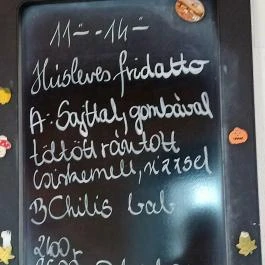 11⁻ - 14⁻
Húsleves fridatto
A: Sajttal, gombával
töltött rántott
csirkemell, rizzsel
B Chilis bab
2600